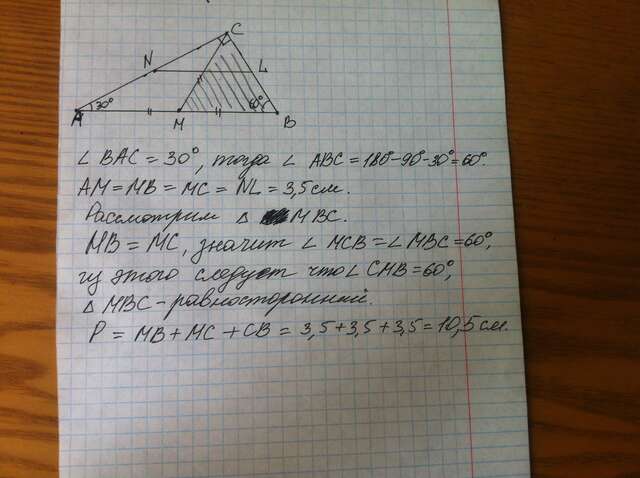 A
30°
N
C
M
L
60°
B
∠ BAC = 30°, тогда ∠ ABC = 180°-90°-30°=60°.
AM = MB = MC = NL = 3,5 см.
Расмотрим Δ MBC.
MB = MC, значит ∠ MCB = ∠ MBC = 60°,
из этого следует что ∠ CMB = 60°,
Δ MBC - равносторонний.
P = MB + MC + CB = 3,5 + 3,5 + 3,5 = 10,5 см.